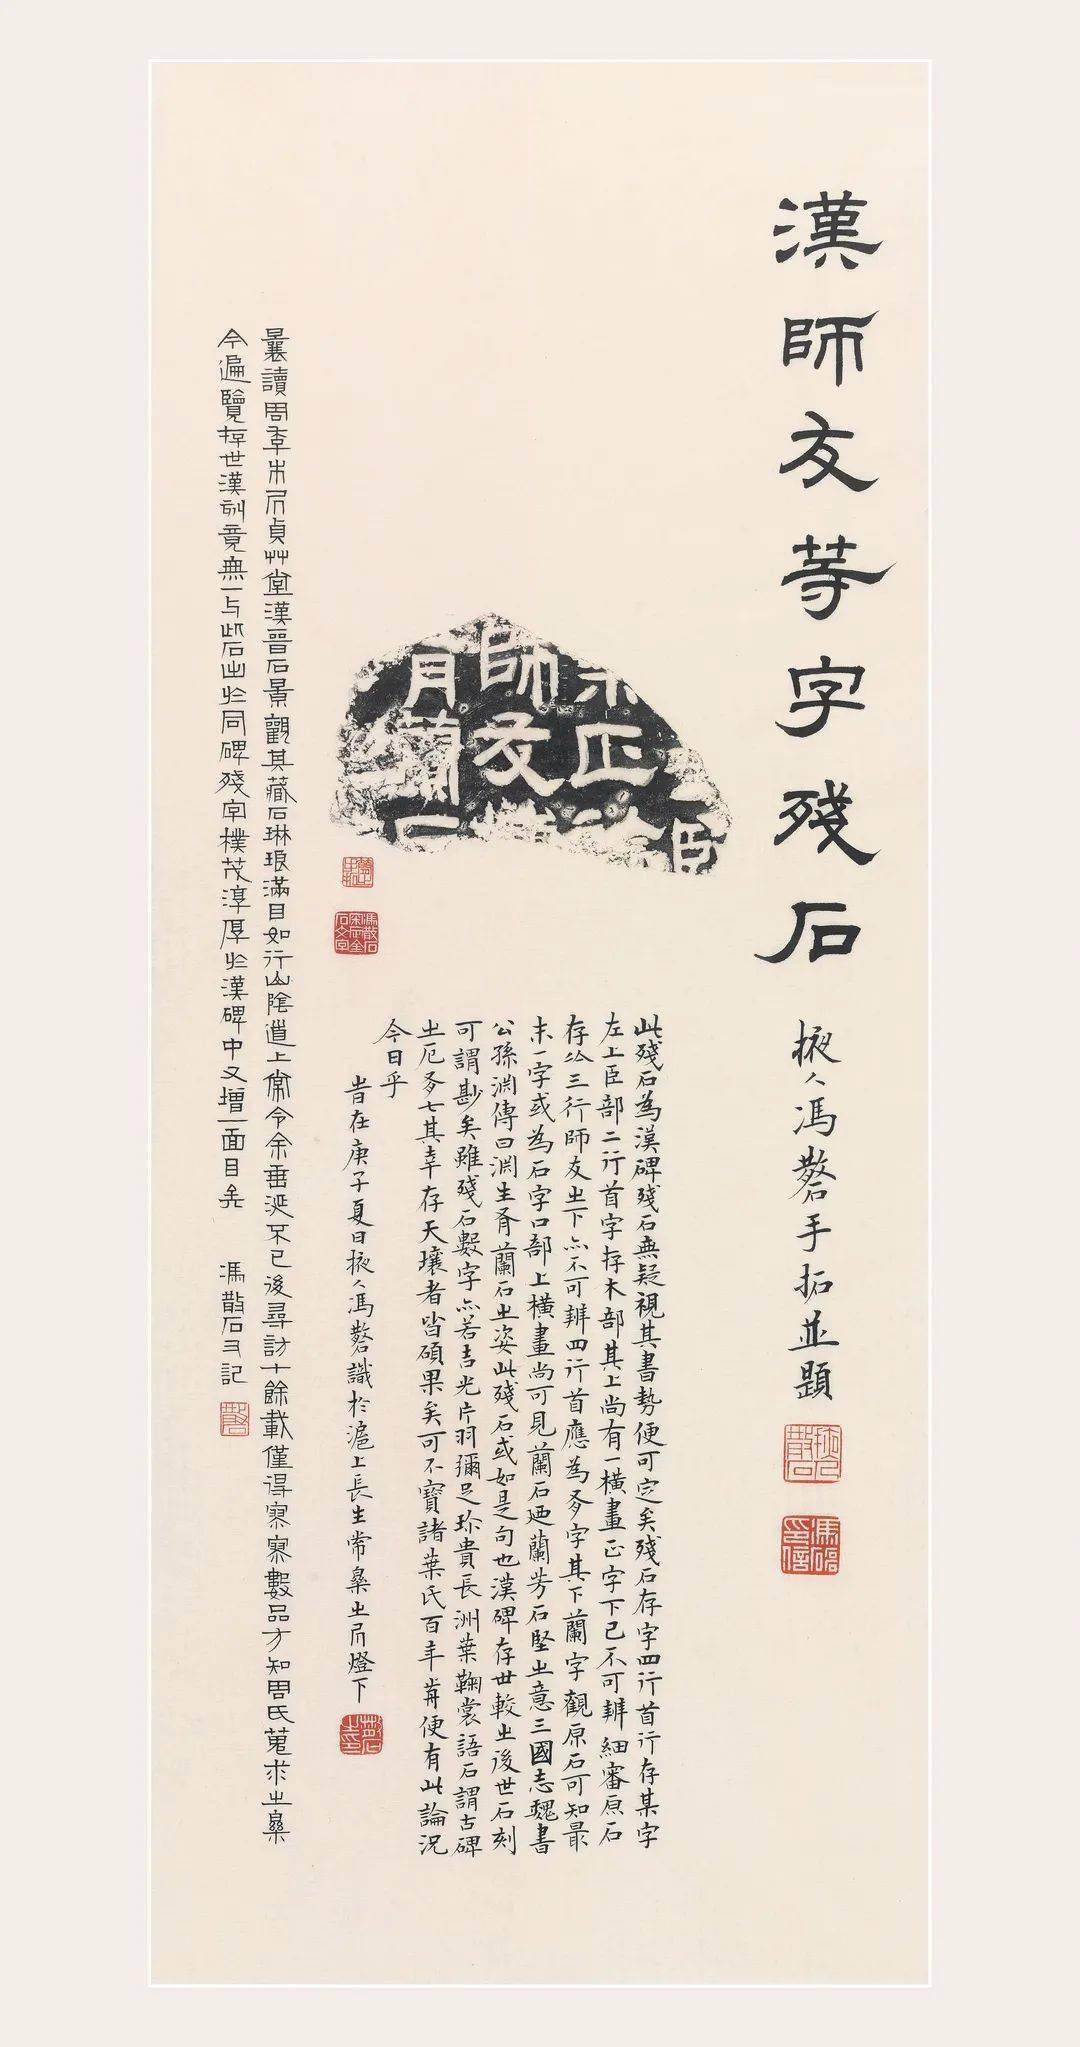 漢師友等字殘石
掖人馮磬手拓並題
末正
師友
月蘭
臣
此殘石為漢碑殘石無疑視其書勢便可定矣殘石存字四行首行存某字
左上臣部二行首字存木部其上尚有一橫畫正字下已不可辨細審原石
存丝三行師友㞢下亦不可辨四行首應為胥字其下蘭字觀原石可知最
末一字或為石字口部上橫畫尚可見蘭石迺蘭芳石堅㞢意三國志魏書
公孫淵傳曰淵生胥蘭石㞢姿此殘石或如是句也漢碑存世較㞢後世石刻
可謂尟矣雖殘石數字亦若吉光片羽彌足珍貴長洲葉鞠裳語石謂古碑
㞢厄有七其幸存天壤者皆碩果矣可不寶諸葉氏百年前便有此論況
今日乎
旹在庚子夏日掖人馮磬識於滬上長生常樂㞢居燈下
曩讀周季木居貞艸堂漢晉石景觀其藏石琳琅滿目如行山陰道上常令余垂涎不已後尋訪十餘載僅得寥寥數品方知周氏蒐求㞢難
今遍覽存世漢刻竟無一与此石出於同碑殘字樸茂淳厚於漢碑中又增一面目矣
馮散石又記